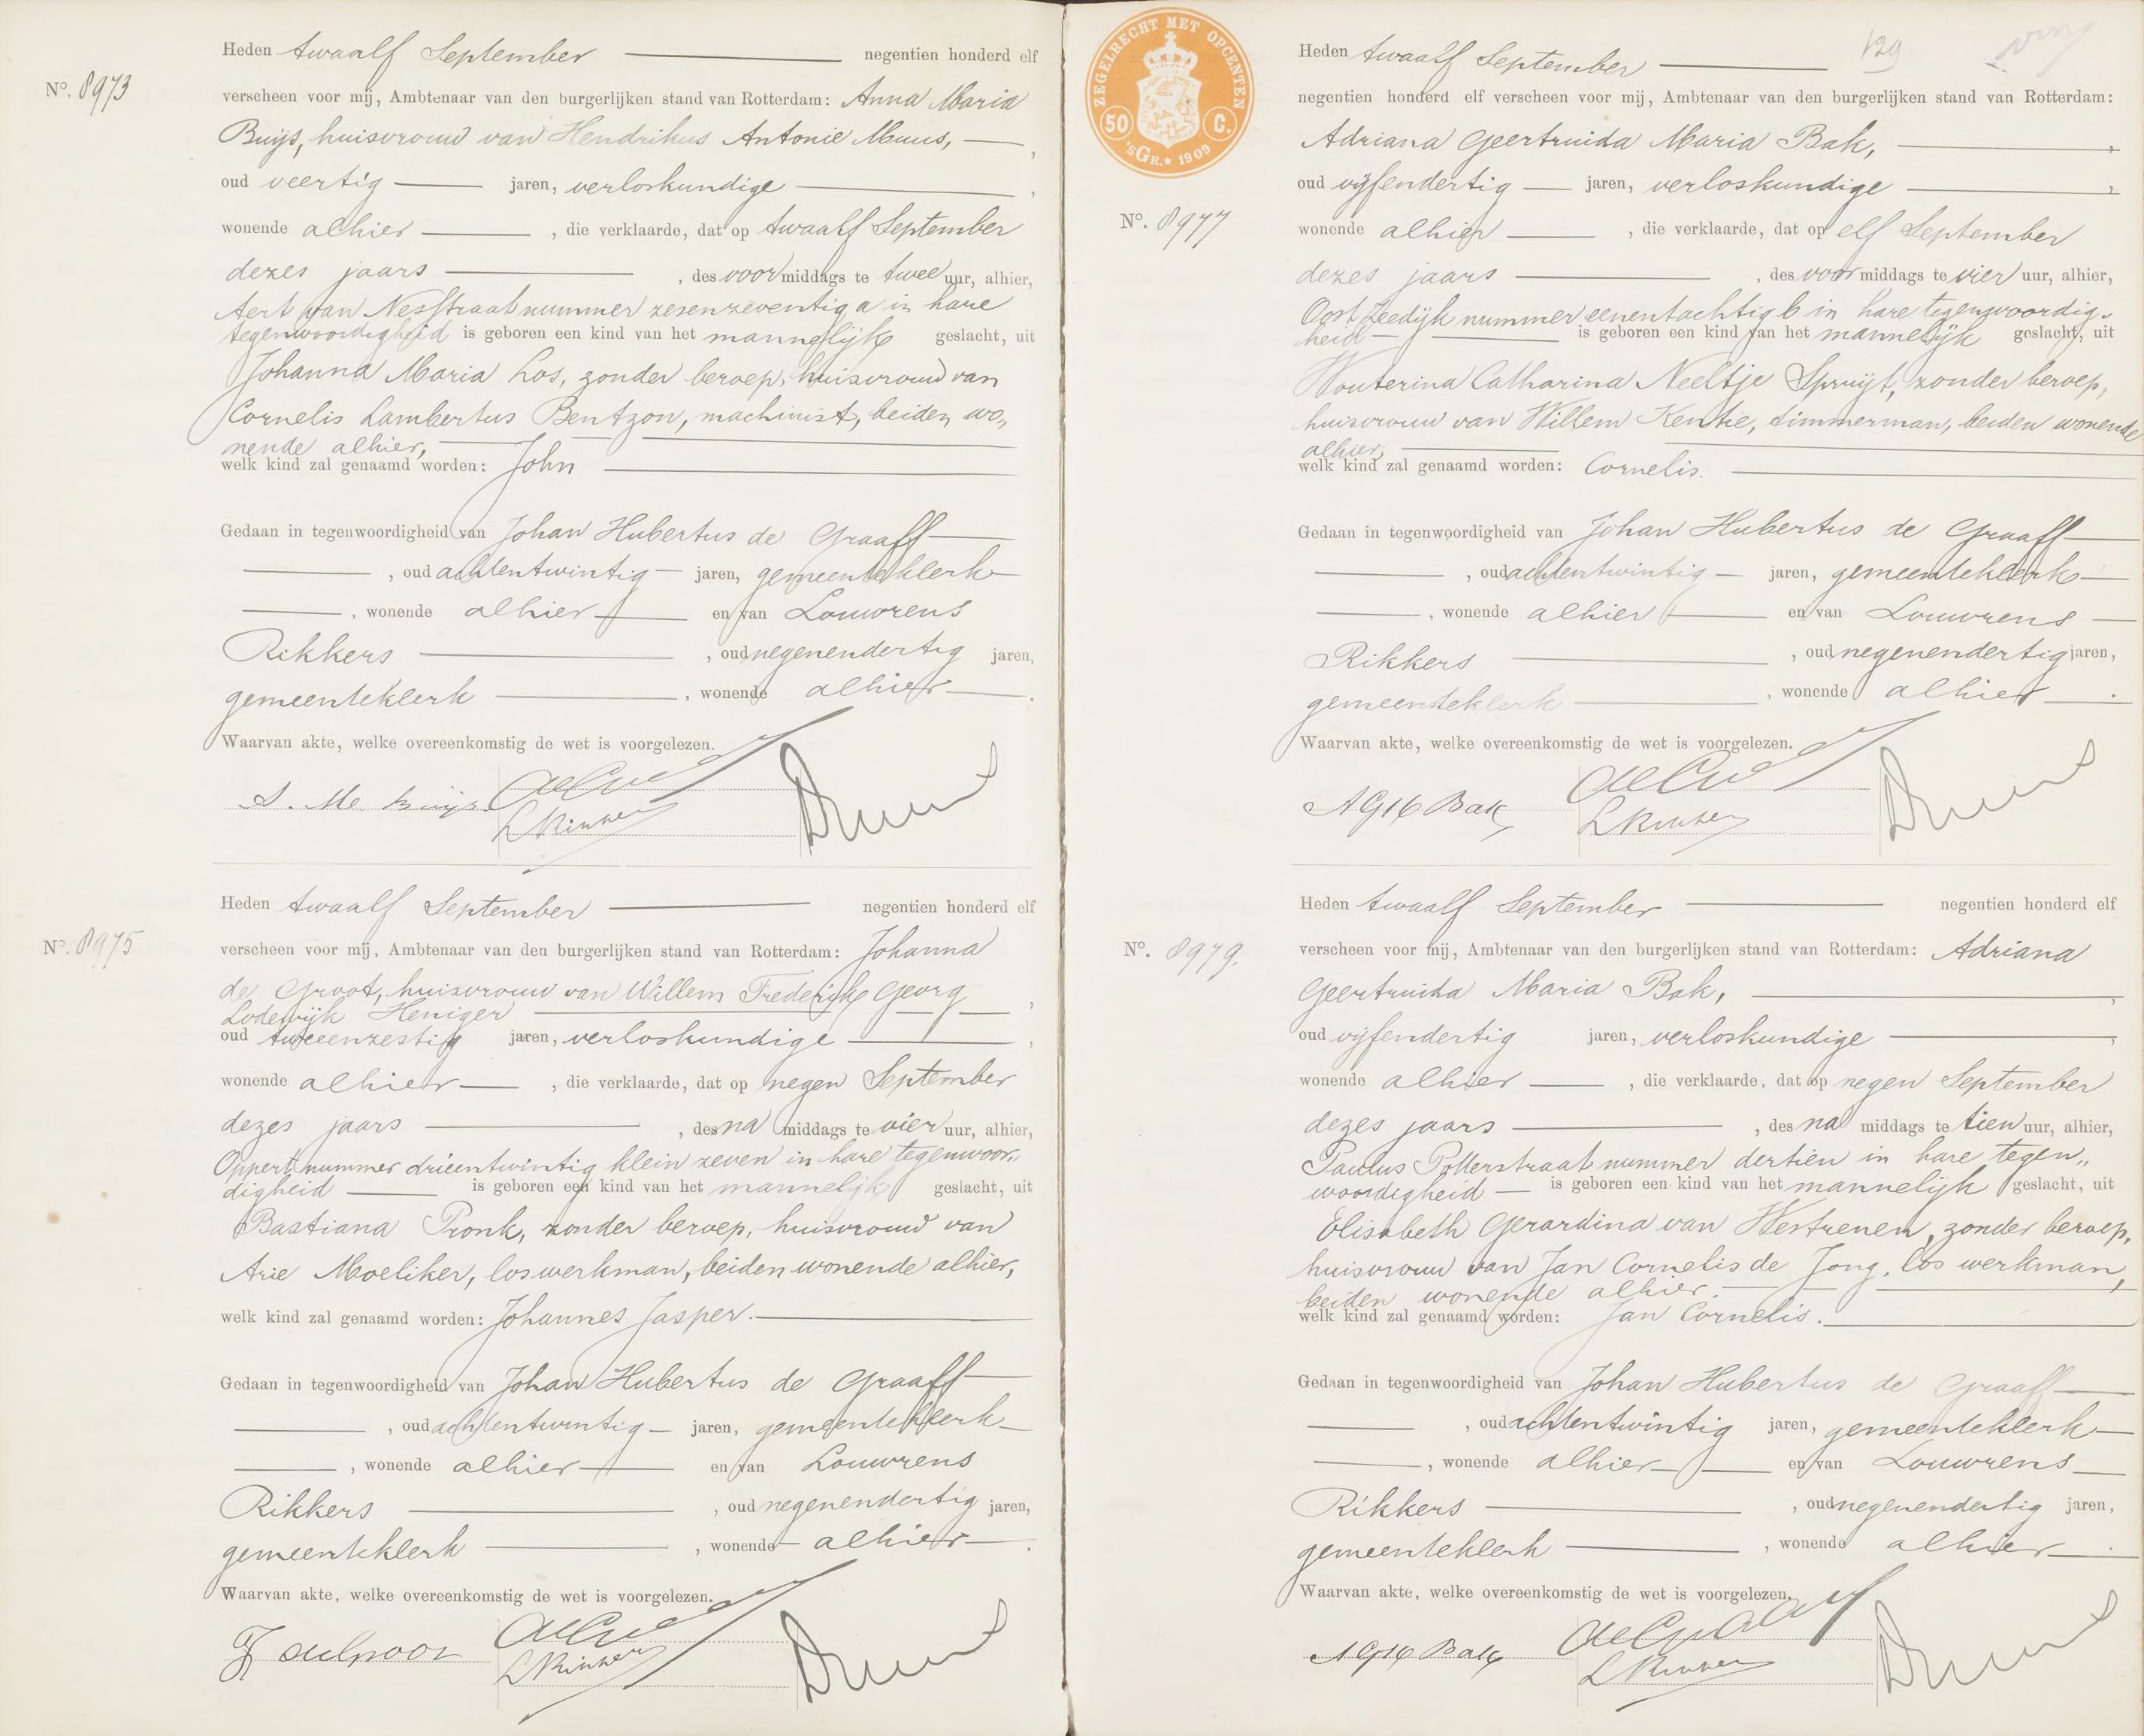 Nº. 8973
Heden twaalf September negentien honderd elf
verscheen voor mij, Ambtenaar van den burgerlijken stand van Rotterdam: Anna Maria
Buijs, huisvrouw van Hendrikus Antonie Muus,
oud veertig jaren, verloskundige,
wonende alhier, die verklaarde, dat op twaalf September
dezes jaars, des voormiddags te twee uur, alhier,
Aert van Nesstraat nummer zesenzeventig a in hare
tegenwoordigheid is geboren een kind van het mannelijk geslacht, uit
Johanna Maria Los, zonder beroep, huisvrouw van
Cornelis Lambertus Bentzon, machinist, beiden wo„
nende alhier,
welk kind zal genaamd worden: John
Gedaan in tegenwoordigheid van Johan Hubertus de Graaff
, oud achtentwintig jaren, gemeenteklerk
, wonende alhier en van Louwrens
Rikkers, oud negenendertig jaren,
gemeenteklerk, wonende alhier.
Waarvan akte, welke overeenkomstig de wet is voorgelezen.
A. M. Buijs
L Rikkers
Nº. 8975
Heden twaalf September negentien honderd elf
verscheen voor mij, Ambtenaar van den burgerlijken stand van Rotterdam: Johanna
de Groot, huisvrouw van Willem Frederijk Georg
Lodewijk Heniger,
oud tweeenzestig jaren, verloskundige,
wonende alhier, die verklaarde, dat op negen September
dezes jaars, des na middags te vier uur, alhier,
Oppert nummer drieentwintig klein zeven in hare tegenwoor„
digheid is geboren een kind van het mannelijk geslacht, uit
Bastiana Pronk, zonder beroep, huisvrouw van
Arie Moeliker, los werkman, beiden wonende alhier,
welk kind zal genaamd worden: Johannes Jasper.
Gedaan in tegenwoordigheid van Johan Hubertus de Graaff
, oud achtentwintig jaren, gemeenteklerk
, wonende alhier en van Louwrens
Rikkers, oud negenendertig jaren,
gemeenteklerk, wonende alhier.
Waarvan akte, welke overeenkomstig de wet is voorgelezen.
J de Groot
L Rikkers
ZEGELRECHT MET OPCENTEN
50 C.
'sGR. * 1909
129
Nº. 8977
Heden twaalf September
negentien honderd elf verscheen voor mij, Ambtenaar van den burgerlijken stand van Rotterdam:
Adriana Geertruida Maria Bak,
oud vijfendertig jaren, verloskundige,
wonende alhier, die verklaarde, dat op elf September
dezes jaars, des voormiddags te vier uur, alhier,
Oost Zeedijk nummer eenentachtig b in hare tegenwoordig„
heid is geboren een kind van het mannelijk geslacht, uit
Wouterina Catharina Neeltje Spruijt, zonder beroep,
huisvrouw van Willem Kentie, timmerman, beiden wonende
alhier,
welk kind zal genaamd worden: Cornelis.
Gedaan in tegenwoordigheid van Johan Hubertus de Graaff
, oud achtentwintig jaren, gemeenteklerk
, wonende alhier en van Louwrens
Rikkers, oud negenendertig jaren,
gemeenteklerk, wonende alhier.
Waarvan akte, welke overeenkomstig de wet is voorgelezen.
A G M Bak
L Rikkers
Nº. 8979.
Heden twaalf September negentien honderd elf
verscheen voor mij, Ambtenaar van den burgerlijken stand van Rotterdam: Adriana
Geertruida Maria Bak,
oud vijfendertig jaren, verloskundige,
wonende alhier, die verklaarde, dat op negen September
dezes jaars, des na middags te tien uur, alhier,
Paulus Potterstraat nummer dertien in hare tegen„
woordigheid is geboren een kind van het mannelijk geslacht, uit
Elisabeth Gerardina van Westrenen, zonder beroep,
huisvrouw van Jan Cornelis de Jong, los werkman,
beiden wonende alhier,
welk kind zal genaamd worden: Jan Cornelis.
Gedaan in tegenwoordigheid van Johan Hubertus de Graaff
, oud achtentwintig jaren, gemeenteklerk
, wonende alhier en van Louwrens
Rikkers, oud negenendertig jaren,
gemeenteklerk, wonende alhier.
Waarvan akte, welke overeenkomstig de wet is voorgelezen.
A G M Bak
de Graaff
L Rikkers